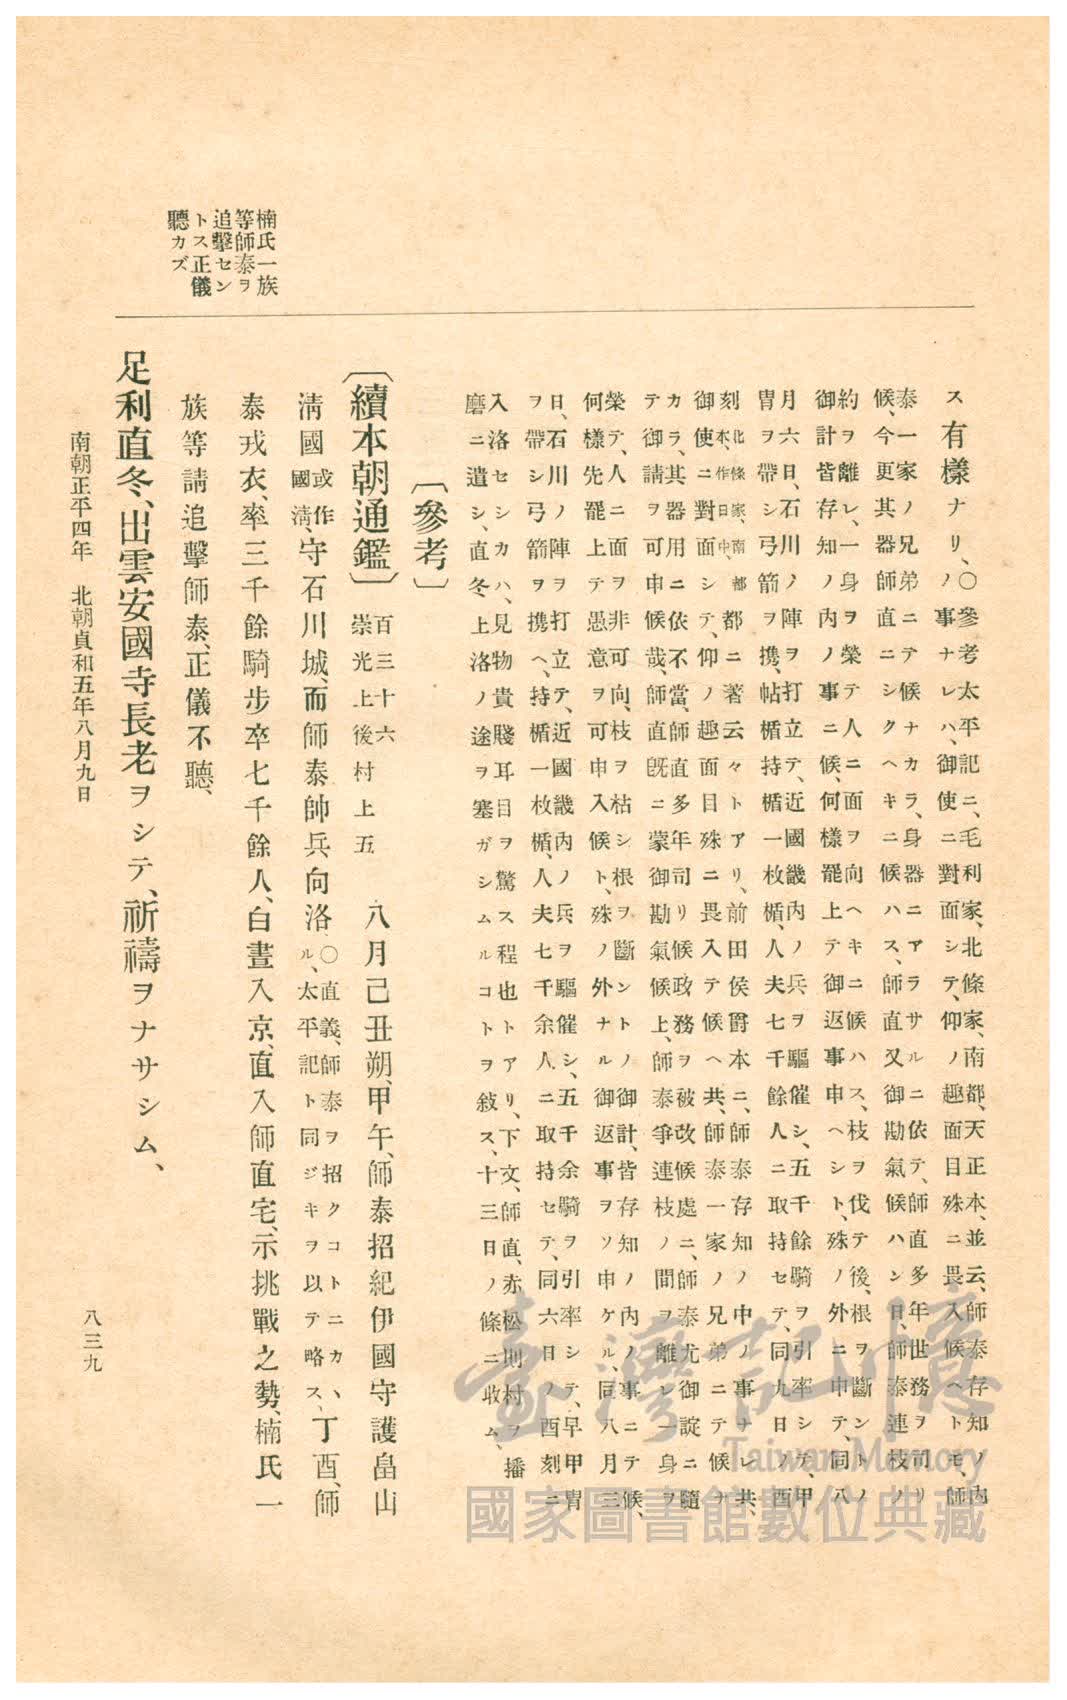 楠氏一族
等師泰ヲ
追擊セン
トス正儀
聽カズ
ス有様ナリ、○參考太平記ニ、毛利家、北條家、南都、天正本、並云、師泰存知ノ内
ノ事ナレハ、御使ニ對面シテ、仰ノ趣面目殊ニ畏入候ヘトモ、師
泰一家ノ兄弟ニテ候ナカラ、身器ニアラサルニ依テ、師直多年世務ヲ司リ
候、今更其器師直ニシクヘキニ候ハス、師直又御勘氣候ハン日、師泰連枝ノ
約ヲ離レ、一身ヲ榮テ人ニ面ヲ向ヘキニ候ハス、枝ヲ伐テ後、根ヲ斷ントノ
御計皆存知ノ内ノ事ニ候、何樣罷上テ御返事申ヘシト、殊ノ外ニ申テ、同八
月六日、石川ノ陣ヲ打立テ、近國畿内ノ兵ヲ驅催シ、五千餘騎ヲ引率シテ、甲
冑ヲ帶シ弓箭ヲ携、帖楯持楯一枚楯、人夫七千餘人ニ取持セテ、同九日ノ酉
刻北條家、南都本、作日中、都ニ著云々トアリ、前田侯爵本ニ、師泰存知ノ中ノ事ナレ共、
御使ニ對面シテ、仰ノ趣面目殊ニ畏入テ候ヘ共、師泰一家ノ兄弟ニテ候ナ
カラ、其器用ニ依不當、師直多年司リ候政務ヲ被改候處ニ、師泰尤御諚ニ隨
テ御請ヲ可申候哉、師直既ニ蒙御勘氣候上、師泰爭連枝ノ間ヲ離レ一身ヲ
榮テ、人ニ面ヲ非可向、枝ヲ枯シ根ヲ斷ントノ御計、皆存知ノ内ノ事ニテ候、
何樣先罷上テ愚意ヲ可申入候ト、殊ノ外ナル御返事ヲソ申ケル、同八月三
日、石川ノ陣ヲ打立テ、近國畿内ノ兵ヲ驅催シ、五千余騎ヲ引率シテ、早甲冑
ヲ帶シ弓箭ヲ携ヘ、持楯一枚楯、人夫七千余人ニ取持セテ、同六日ノ酉刻ニ
入洛セシカハ、見物貴賤耳目ヲ驚ス程也トアリ、下文、師直、赤松則村ヲ播
磨ニ遣シ、直冬上洛ノ途ヲ塞ガシムルコトヲ敍ス、十三日ノ條ニ收ム、
〔參考〕
〔續本朝通鑑〕百三十六
崇光上後村上五 八月己丑朔、甲午、師泰招紀伊國守護畠山
淸國或作國淸、守石川城、而師泰帥兵向洛、○直義、師泰ヲ招クコトニカヽ
ル、太平記ト同ジキヲ以テ略ス、丁酉、師
泰戎衣、率三千餘騎步卒七千餘人、白晝入京、直入師直宅、示挑戰之勢、楠氏一
族等請追擊師泰、正儀不聽、
足利直冬、出雲安國寺長老ヲシテ、祈禱ヲナサシム、
南朝正平四年 北朝貞和五年八月九日
八三九
臺灣記憶
Taiwan Memory
國家圖書館數位典藏